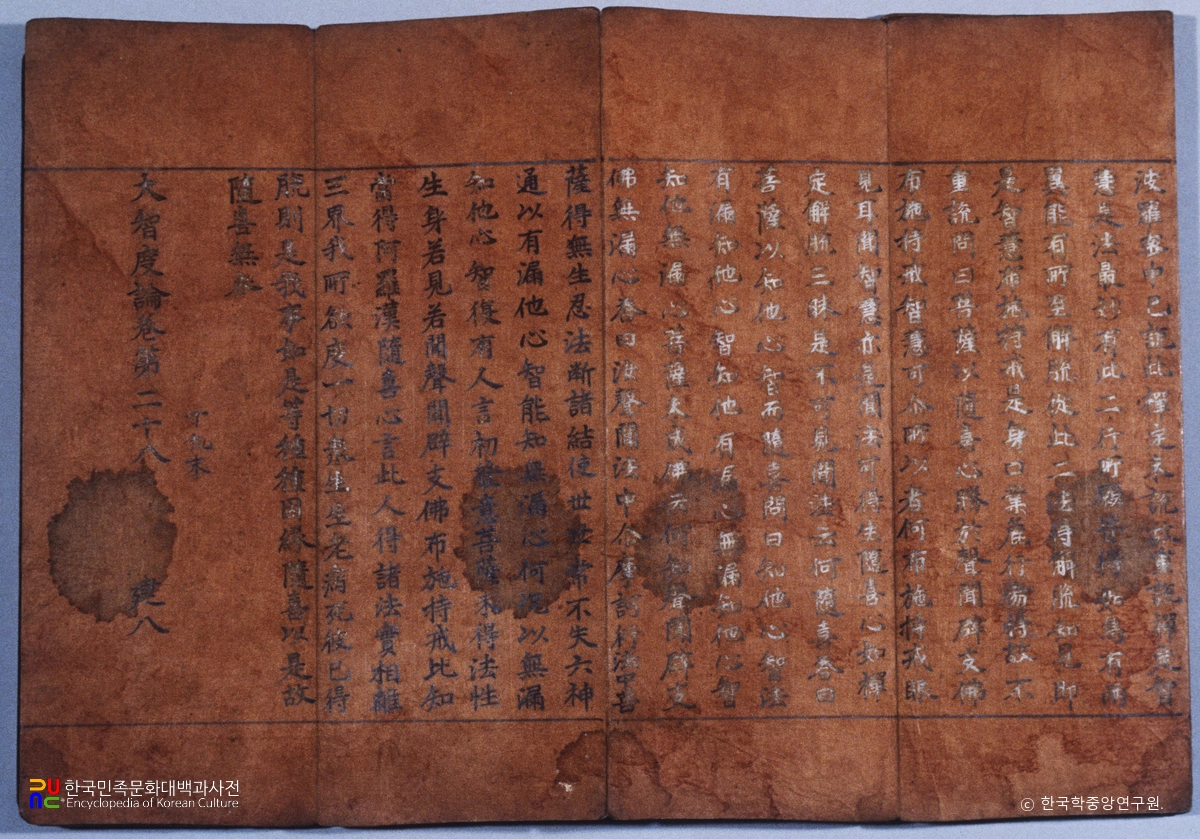 波羅蜜中已說此禪定未說故重說禪定智
慧是法最妙有此二行所願皆得如鳥有兩
翼能有所至解脫從此二法得解脫知見即
是智慧布施持戒是身口業麁行易得故不
重說問曰菩薩以隨喜心勝於聲聞辟支佛
布施持戒智慧可尒所以者何布施持戒眼
見耳聞智慧亦是聞法可得生隨喜心如禪
定解脫三昧是不可見聞法云何隨喜荅曰
菩薩以知他心智而隨喜問曰知他心智法
有漏知他心智知他有漏心無漏知他心智
知他無漏心菩薩未成佛云何知聲聞辟支
佛無漏心荅曰汝聲聞法中尒摩訶衍法中菩
薩得無生忍法斷諸結使世世常不失六神
通以有漏他心智能知無漏心何況以無漏
知他心智復有人言初發意菩薩未得法性
生身若見若聞聲聞辟支佛布施持戒比知
當得阿羅漢隨喜心言此人得諸法實相離
三界我所欲度一切衆生生老病死彼已得
脫則是我事如是等種種因緣隨喜以是故
隨喜無咎
大智度論卷第二十八 建八
한국민족문화대백과사전
Encyclopedia of Korean Culture
© 한국학중앙연구원.